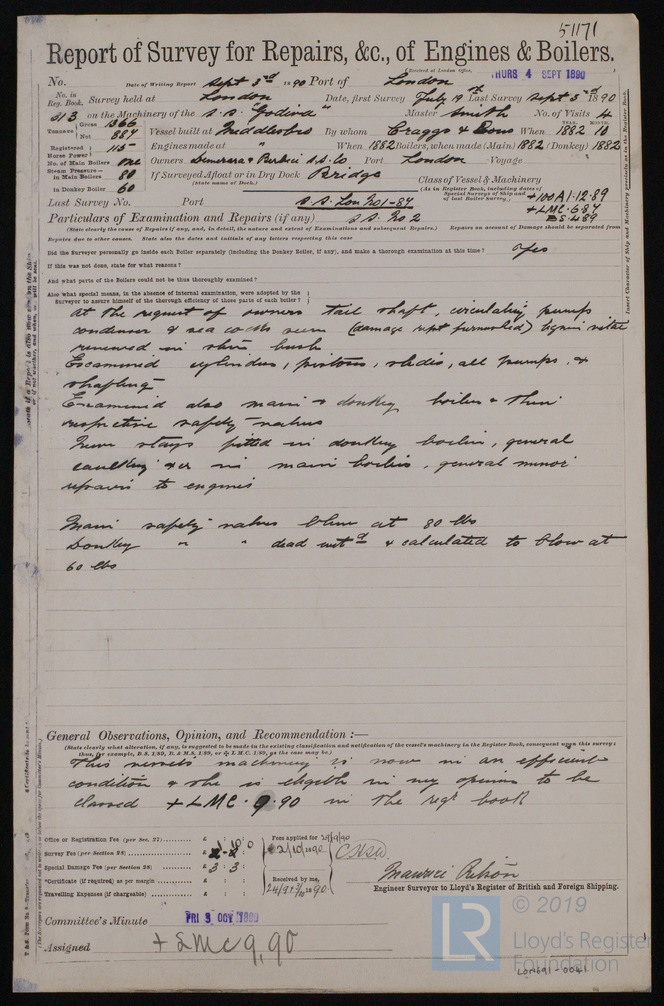 51171
Report of Survey for Repairs, &c., of Engines & Boilers.
(Received at London Office, THURS 4 SEPT 1890
No. Date of Writing Report Sept 3rd 1890 Port of London
No. in Reg. Book. Survey held at London Date, first Survey July 19 Last Survey Sept 3rd 1890
313 on the Machinery of the S.S. "Godiva" Master Smith No. of Visits 4
Tonnage Gross 1366 Net 887 Vessel built at Middlesbro By whom Craggs & Sons When YEAR. 1882 MONTH. 10
Registered Horse Power 115 Engines made at " When 1882 Boilers, when made (Main) 1882 (Donkey) 1882
No. of Main Boilers one Owners Demerara & Berbice S.S. Co Port London Voyage
Steam Pressure in Main Boilers 80 If Surveyed Afloat or in Dry Dock Bridge Class of Vessel & Machinery
(State name of Dock.) (As in Register Book, including dates of Special Surveys of Ship and of last Boiler Survey.)
in Donkey Boiler 60 +100A1.12.89
Last Survey No. Port S.S. Lon No1-87 +LMC.6.87
Particulars of Examination and Repairs (if any) S.S. No 2 BS.4.89
(State clearly the cause of Repairs if any, and, in detail, the nature and extent of Examinations and subsequent Repairs.) Repairs on account of Damage should be separated from
Repairs due to other causes. State also the dates and initials of any letters respecting this case
Did the Surveyor personally go inside each Boiler separately (including the Donkey Boiler, if any), and make a thorough examination at this time? Yes
If this was not done, state for what reasons?
And what parts of the Boilers could not be thus thoroughly examined?
Also what special means, in the absence of internal examination, were adopted by the
Surveyor to assure himself of the thorough efficiency of those parts of each boiler?
At the request of owners tail shaft, circulating pumps
condenser & sea cocks seen (damage rept furnished) lignum vitae
renewed in stern bush
Examined cylinders, pistons, slides, all pumps, &
shafting
Examined also main & donkey boilers & their
respective safety valves
New stays fitted in donkey boiler, general
caulking &c in main boilers, general minor
repairs to engines
Main safety valves blow at 80 lbs
Donkey " " dead wtd & calculated to blow at
60 lbs
General Observations, Opinion, and Recommendation :—
(State clearly what alteration, if any, is suggested to be made in the existing classification and notification of the vessel's machinery in the Register Book, consequent upon this survey;
thus, for example, B.S. 1/89, B. & M.S. 1/89, or + L.M.C. 1/89, as the case may be.)
This vessels machinery is now in an efficient
condition & she is eligible in my opinion to be
classed +LMC.9.90 in the regr book
Office or Registration Fee (per Sec. 27) £ : : Fees applied for
Survey Fee (per Section 28) £ 2/10/1890
Special Damage Fee (per Section 28) £ 3 : 3 :
*Certificate (if required) as per margin £ : : Received by me,
Travelling Expenses (if chargeable) £ : :
Engineer Surveyor to Lloyd's Register of British and Foreign Shipping.
Committee's Minute FRI 3 OCT 1890
Assigned + LMC 9,90
Insert Character of Ship and Machinery precisely as in the Register Book.
LR
© 2019
Lloyd's Register
Foundation
LON691-0041